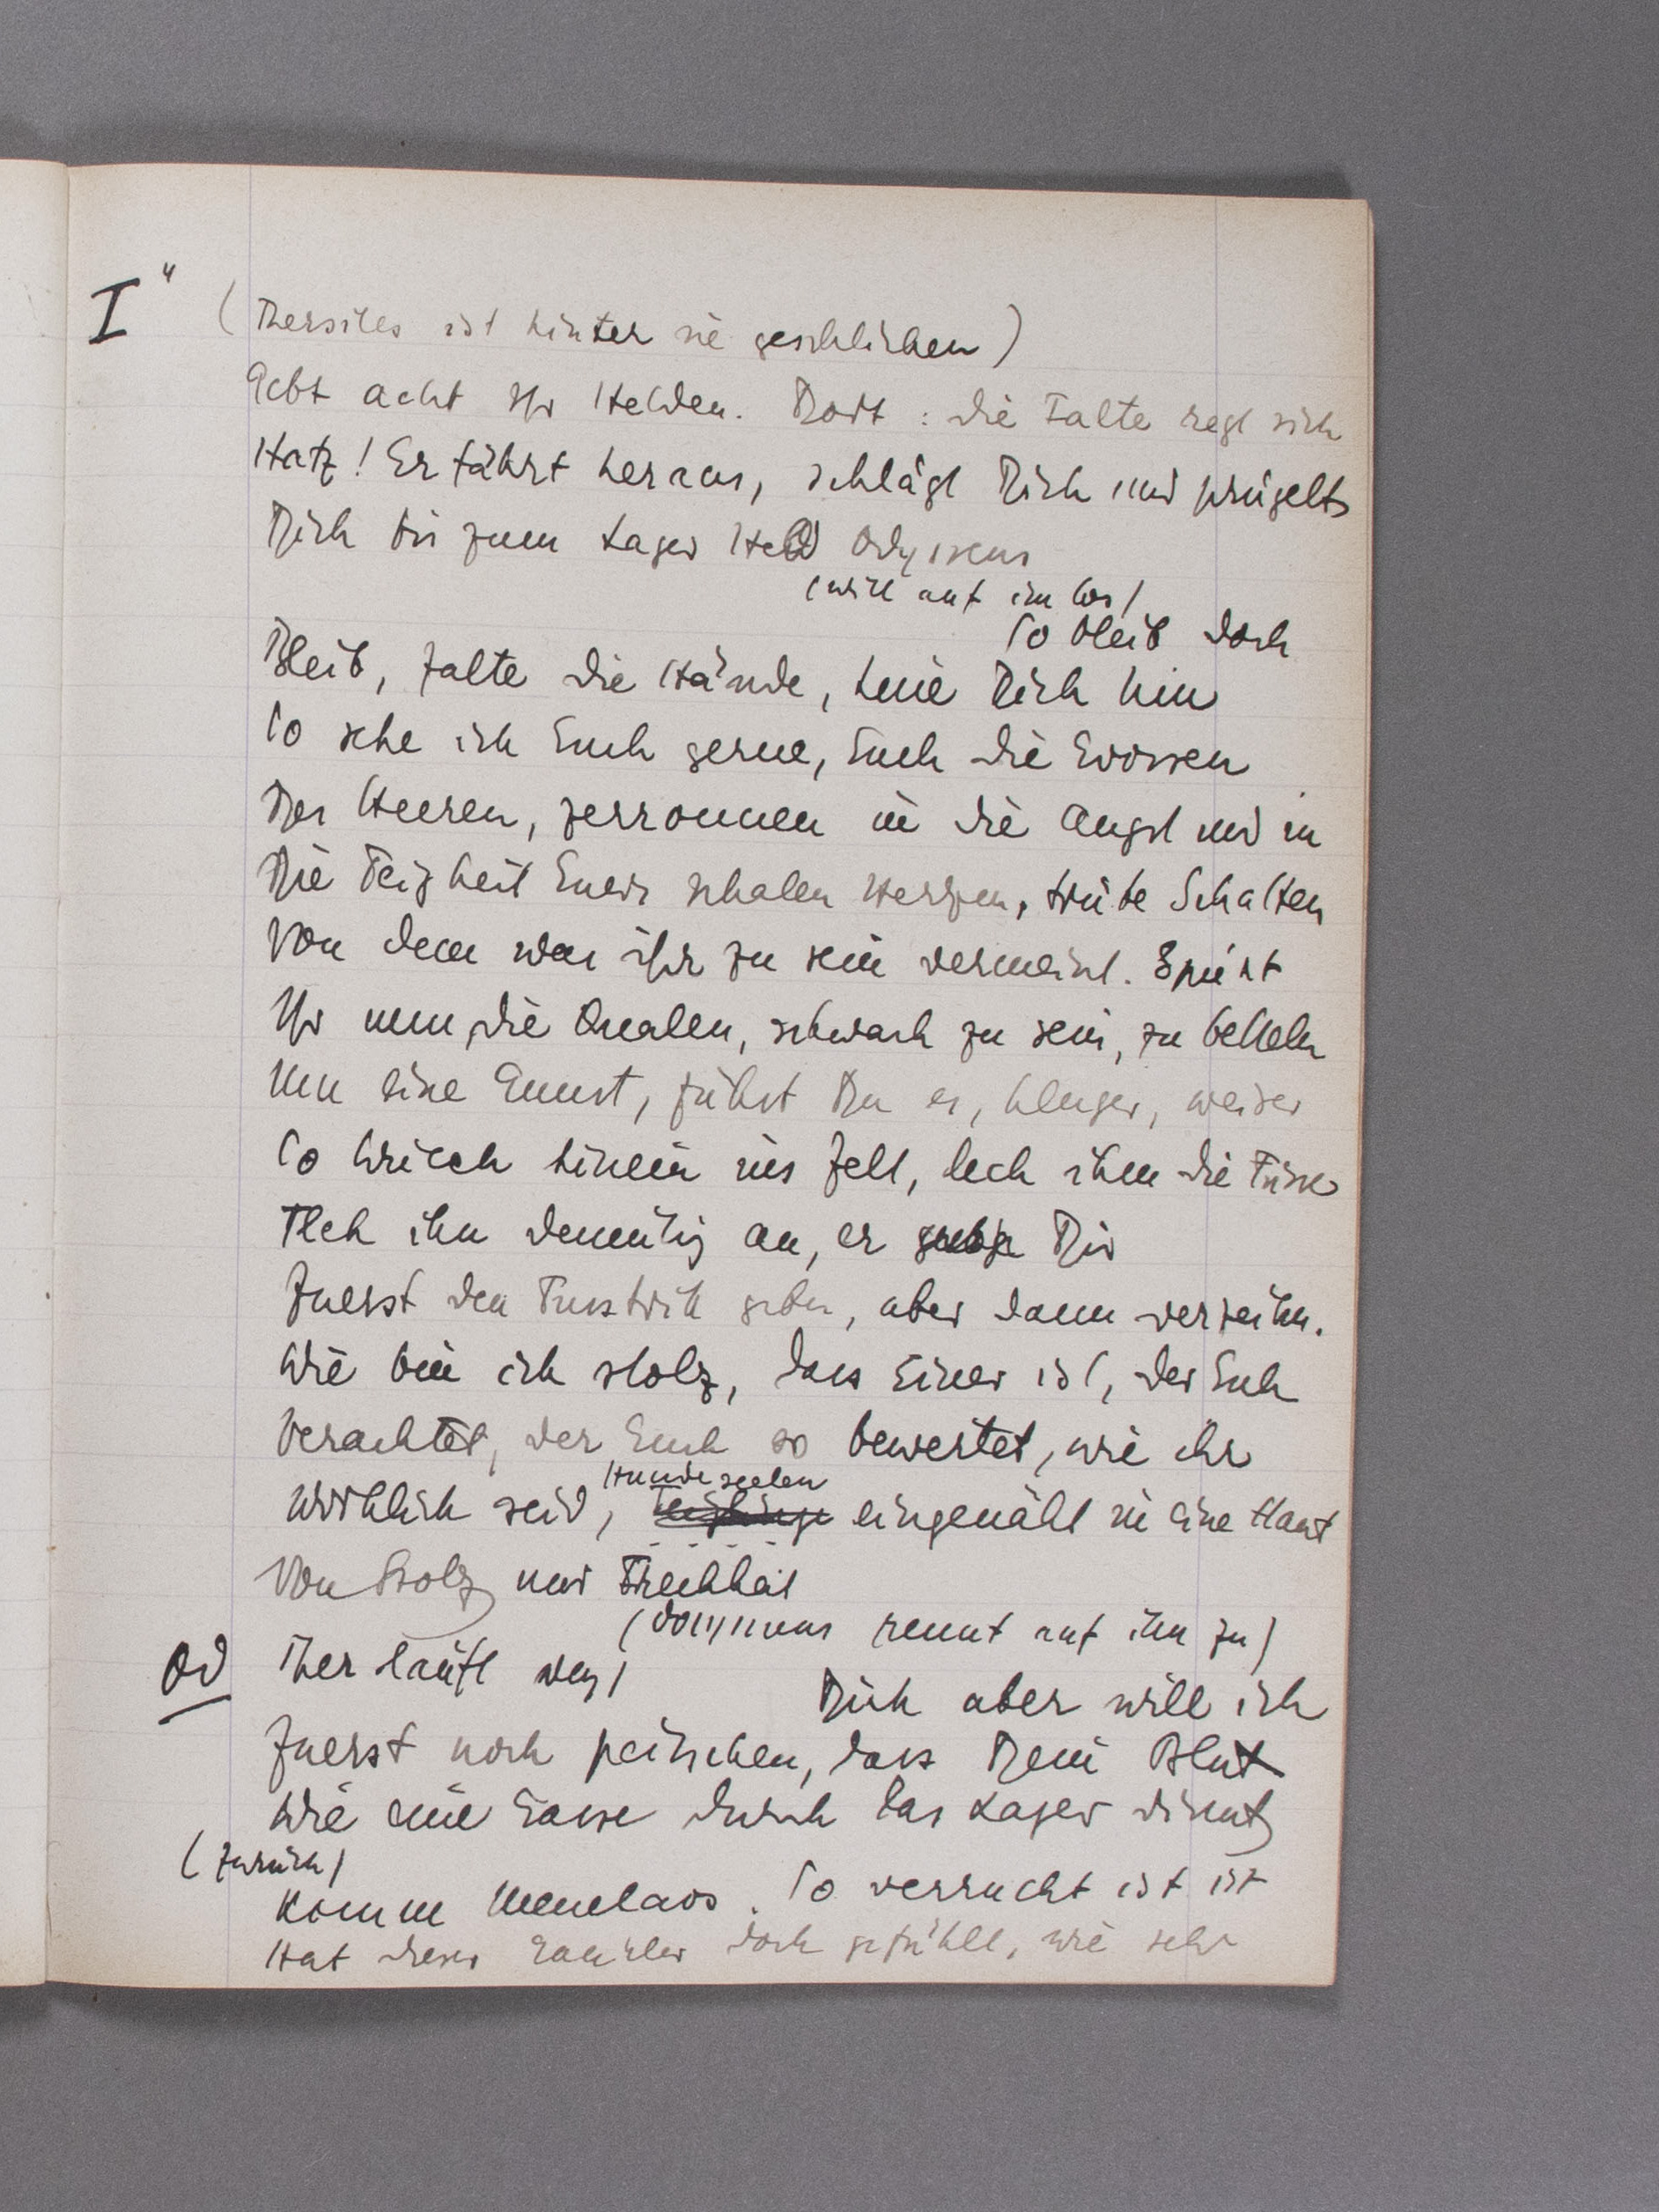 I"
(Thersites ist hinter sie geschlichen)
Gebt acht Ihr Helden. Dort: die Falte regt sich
Hatz! Er fährt heraus, schlägt Dich und prügelts
Dich bis zum Lager Held Odysseus
(will auf ihn los)
So bleib doch
Bleib, falte die Hände, knie Dich hin
So sehe ich Euch gerne, Euch die Grossen
Des Heeres, zerronnen in die Angst und in
Die Feigheit Eurer schalen Herzen, trübe Schatten
Von dem was ihr zu sein vermeint. Spürt
Ihr nun die Qualen, schwach zu sein, zu betteln
Um eine Gunst, fühlst Du es, kluger, weiser
So kriech hinein ins Zelt, leck ihm die Füsse
Fleh ihn demütig an, er Dir
Zuerst den Fusstritt geben, aber dann verzeihn.
Wie bin ich stolz, dass Einer ist, der Euch
Verachtet, der Euch so bewertet, wie ihr
Wirklich seid, Hundeseelen eingenäht in eine Haut
Von Stolz und Frechheit
(Odysseus rennt auf ihn zu)
Od Ther läuft weg)
Dich aber will ich
Zuerst noch peitschen, dass Dein Blut
Wie eine Gasse durch das Lager rinnt
(zurück)
Komm Menelaos. So verrucht ist ist
Hat dieser doch gefühlt, wie sehr